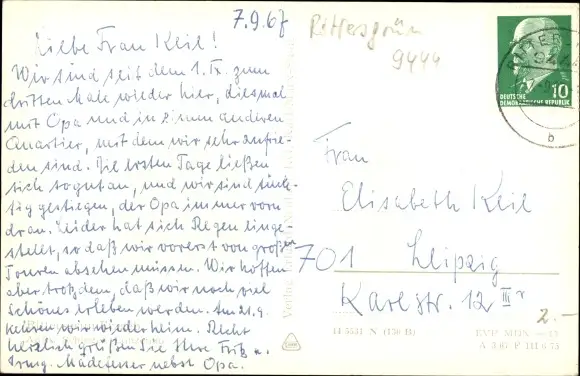 7.9.67
Liebe Frau Keil!
Wir sind seit dem 1. IX. zum
dritten Male wieder hier, diesmal
mit Opa und in einem anderen
Quartier, mit dem wir sehr zufrie-
den sind. Die ersten Tage ließen
sich so gut an, und wir sind tüch-
tig gestiegen, der Opa immer vorn
dran. Leider hat sich Regen einge-
stellt, so daß wir vorerst von großen
Touren absehen müssen. Wir hoffen
aber trotzdem, daß wir noch viel
Schönes erleben werden. Am 21.9.
kehren wir wieder heim. Recht
herzlich grüßen Sie Ihre Fritz u.
Irmg. Mädefesser nebst Opa.
Rittersgrün
9444
10
DEUTSCHE
DEMOKRATISCHE REPUBLIK
b
Frau
Elisabeth Keil
701 Leipzig
Karlstr. 12 III r
2.-